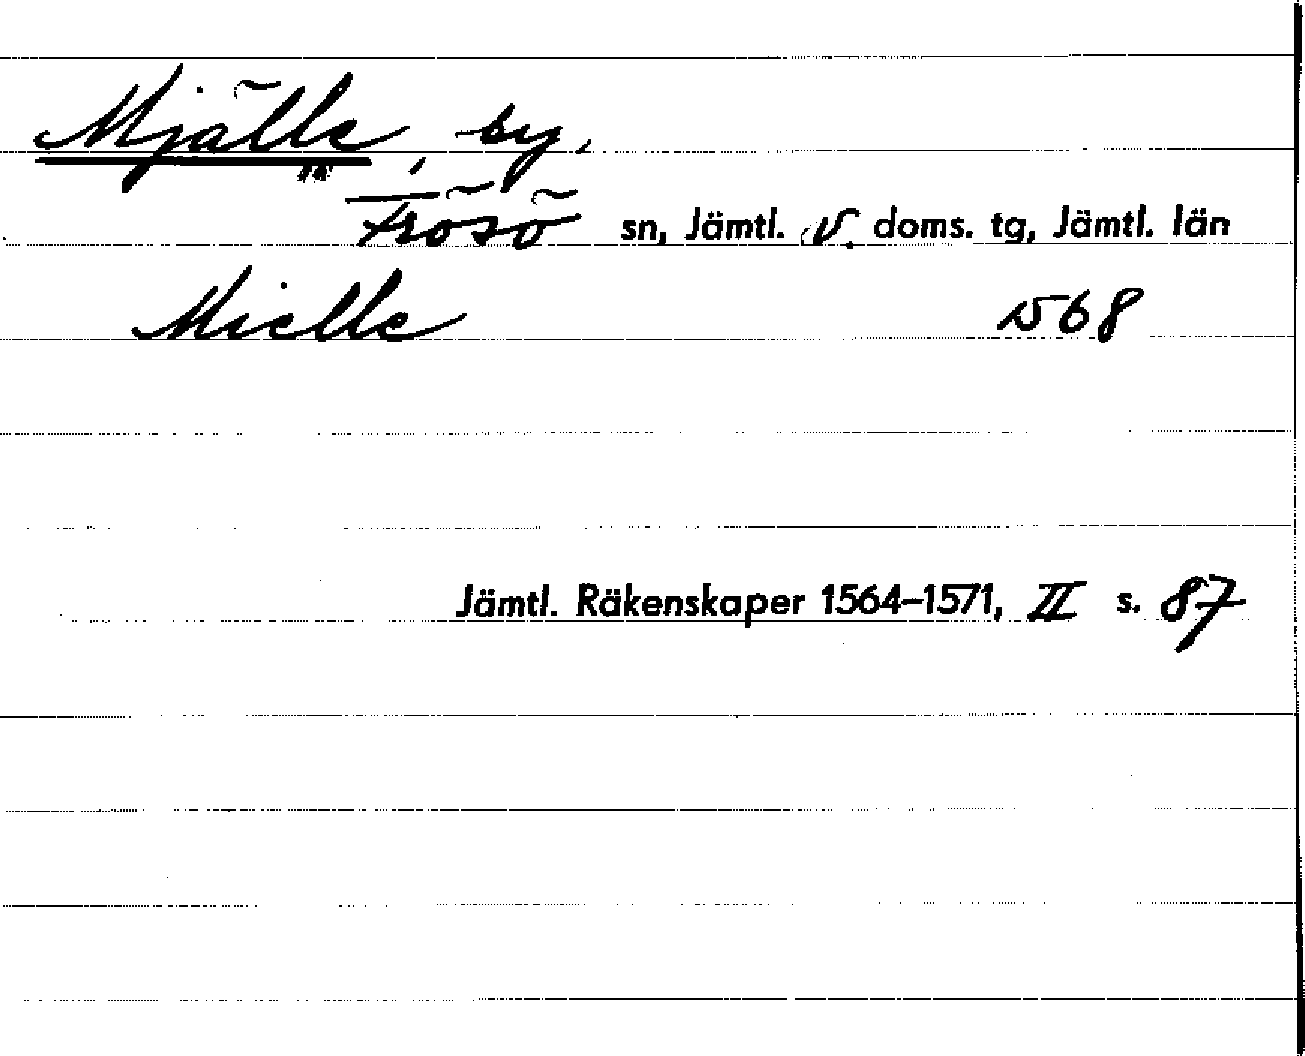 Mjälle, by,
Frösö sn, Jämtl. v. doms. tg, Jämtl. län
Mielle 1568
Jämtl. Räkenskaper 1564–1571, II s. 87